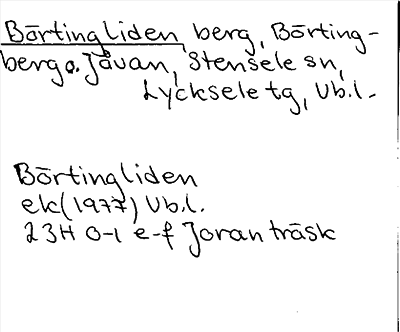 Börtingliden, berg, Börting-
berg o. Jåvan, Stensele sn,
Lycksele tg, Vb.l.
Börtingliden
ek (1977) Vb.l.
23H 0-1 e-f Joranträsk